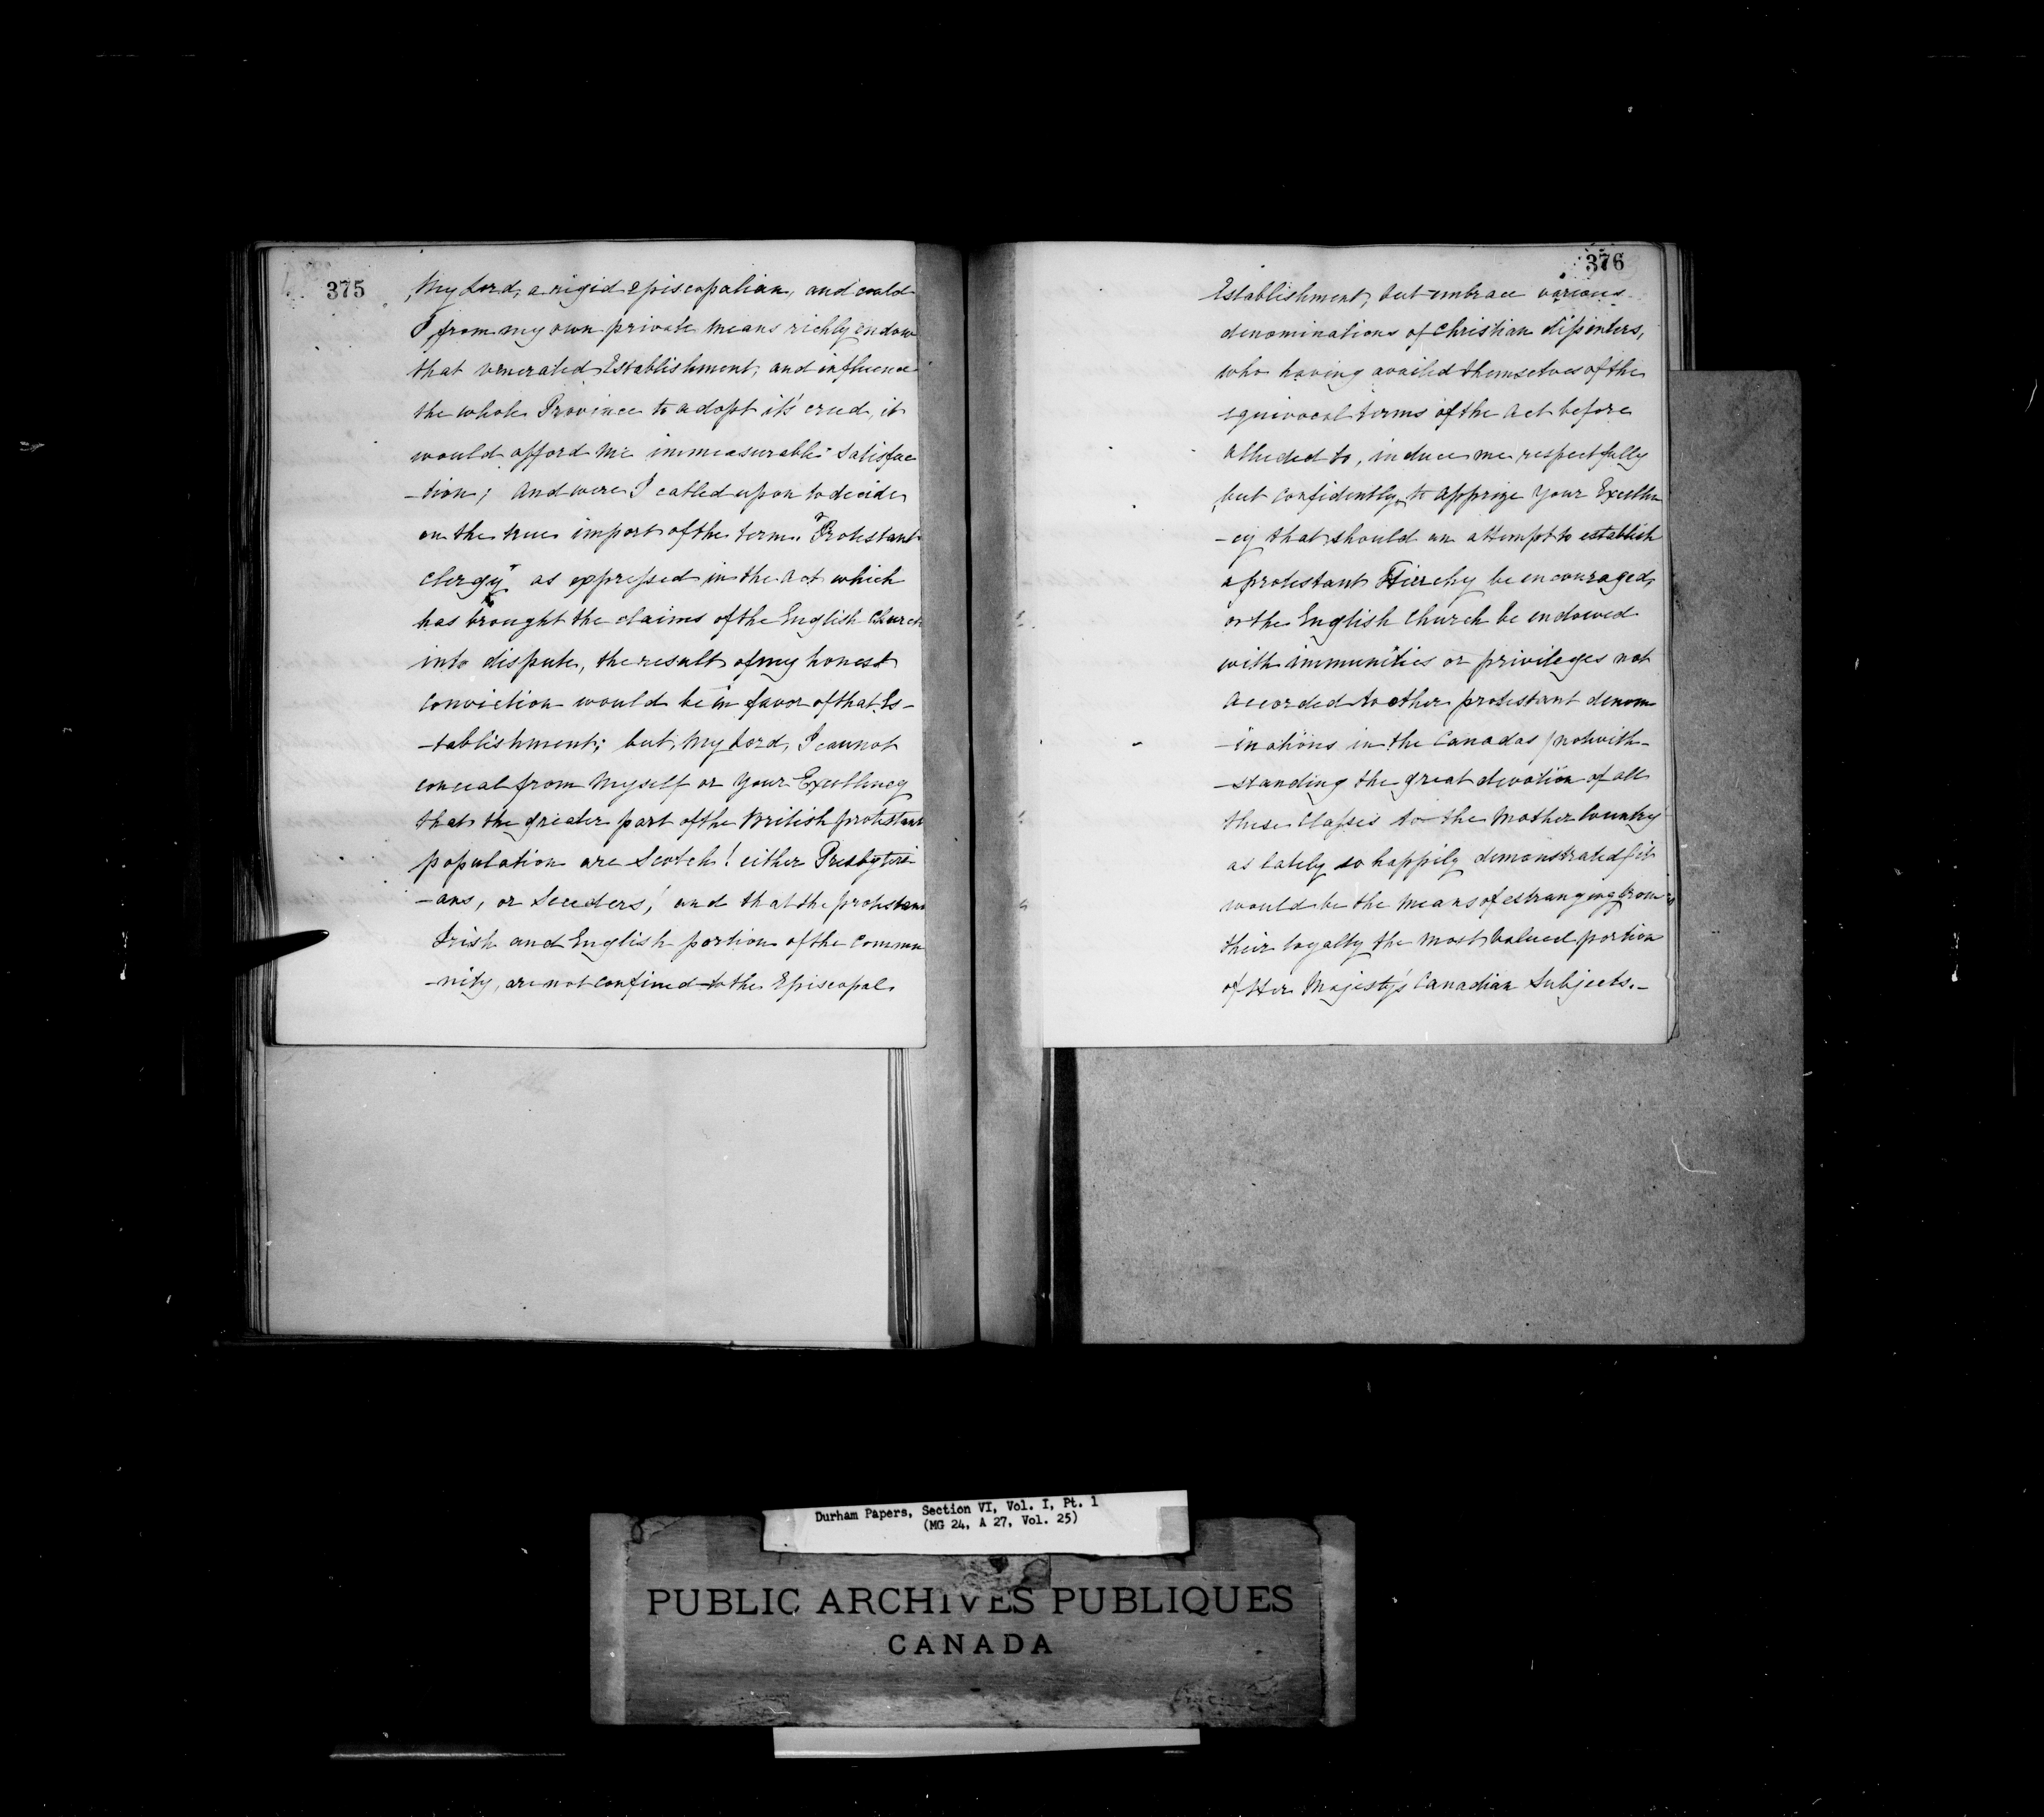 375
My Lord, a rigid episcopalian, and could
I from my own private means richly endow
that venerated Establishment, and influence
the whole Province to adopt it's creed, it
would afford me immeasurable satisfac
-tion; and were I called upon to decide
on the true import of the term "Protestant
Clergy" as expressed in the act which
has brought the claims of the English Church
into dispute, the result of my honest
conviction would be in favor of that Es-
-tablishment; but, My Lord, I cannot
conceal from myself or Your Excellency
that the greater part of the British protestant
population are Scotch! either Presbyteri-
-ans, or Seceders! and that the protestant
Irish and English portion of the commu
-nity, are not confined to the Episcopal
376
Establishment, but embrace various
denominations of Christian dissenters,
who having availed themselves of the
equivocal terms of the act before
alluded to, induce me respectfully
but confidently, to apprize Your Excellen
-cy that should an attempt to establish
a protestant Hierchy be encouraged,
or the English Church be endowed
with immunities or privileges not
accorded to other protestant denom
-inations in the Canadas (notwith-
-standing the great devotion of all
these classes to the Mother Country
as lately so happily demonstrated) it
would be the means of estranging from
their loyalty the most valued portion
of Her Majesty's Canadian Subjects.-
Durham Papers, Section VI, Vol. I, Pt. 1
(MG 24, A 27, Vol. 25)
PUBLIC ARCHIVES PUBLIQUES
CANADA